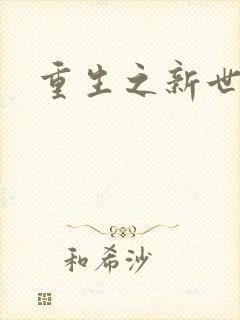 重生之新世
和希沙